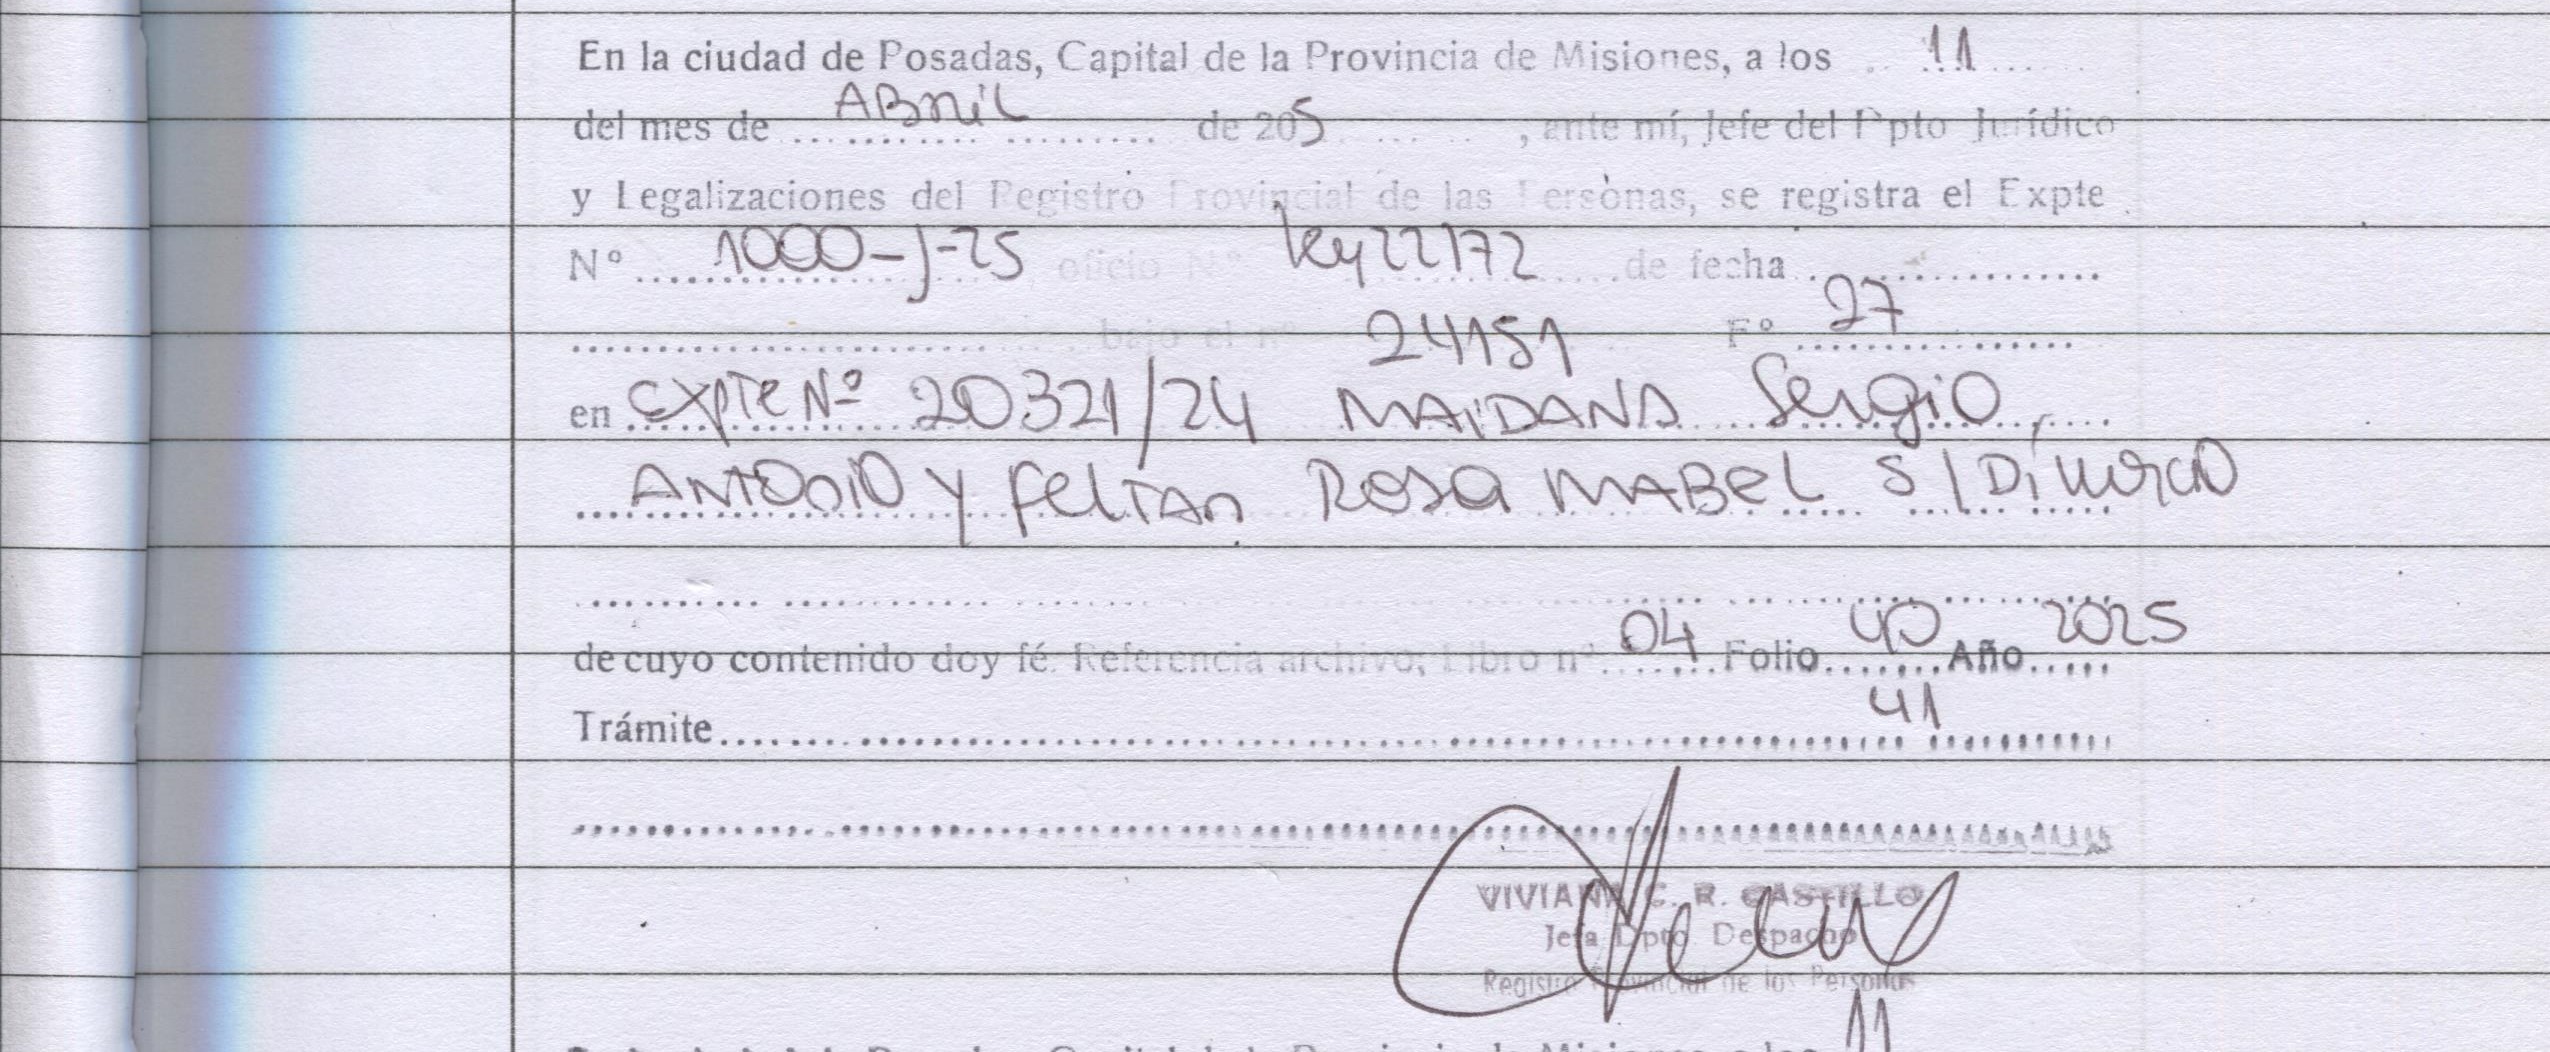 En la ciudad de Posadas, Capital de la Provincia de Misiones, a los 11
del mes de ABril de 205, ante mí, Jefe del Dpto Jurídico
y Legalizaciones del Registro Provincial de las Personas, se registra el Expte
N° 1000-J-25 oficio N° ley 22172 de fecha
bajo el n° 24151 F° 27
en expte Nº 20321/24 MAIDANA Sergio,
ANTONIO y felTAn Rosa MABEL S/Divorcio
de cuyo contenido doy fé. Referencia archivo; Libro n° 04 Folio 40 Año 2025
Trámite 41
VIVIANA C. R. CASTILLO
Jefa Dpto Despacho
Registro Provincial de las Personas
11